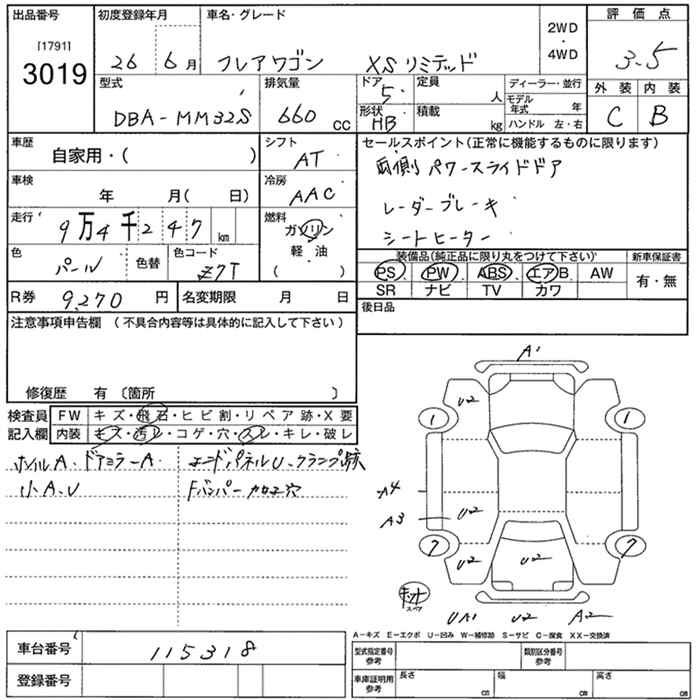 出品番号 初度登録年月 車名・グレード 2WD ・ 4WD 評価点
[1791]
3019 26 6月 フレアワゴン XSリミテッド 3.5
型式 排気量 ドア 定員 ディーラー・並行 外装 内装
DBA-MM32S 660 CC 5 人 モデル年式 年 C B
形状 HB 積載 kg ハンドル 左・右
車歴 シフト セールスポイント(正常に機能するものに限ります)
自家用・( ) AT 両側パワースライドドア
車検 冷房
年 月( 日) AAC レーダーブレーキ
走行 燃料
9万4千247km ガソリン シートヒーター
軽油
( )
色 色替 色コード 装備品(純正品に限り丸をつけて下さい) 新車保証書
パール Z7T PS PW ABS エアB AW 有・無
SR ナビ TV カワ
R券 9,270 円 名変期限 月 日 後日品
注意事項申告欄 (不具合内容等は具体的に記入して下さい)
修復歴 有 〔箇所 〕
検査員 FW キズ・飛石・ヒビ割・リペア跡・X要
記入欄 内装 キズ・汚レ・コゲ・穴・スレ・キレ・破レ
ホイルA、ドアミラーA エンドパネルU、クランプ跡
小A、U Fバンパー加工穴
A1
U2
1 1
A4
A3 U2
7 7
U2 U2 U2
キット
スペア
UA1 U2 A2
A-キズ E-エクボ U-凹み W-補修跡 S-サビ C-腐食 XX-交換済
車台番号 115318
型式指定番号 参考 類別区分番号 参考
登録番号 車庫証明用 参考 長さ cm 幅 cm 高さ cm